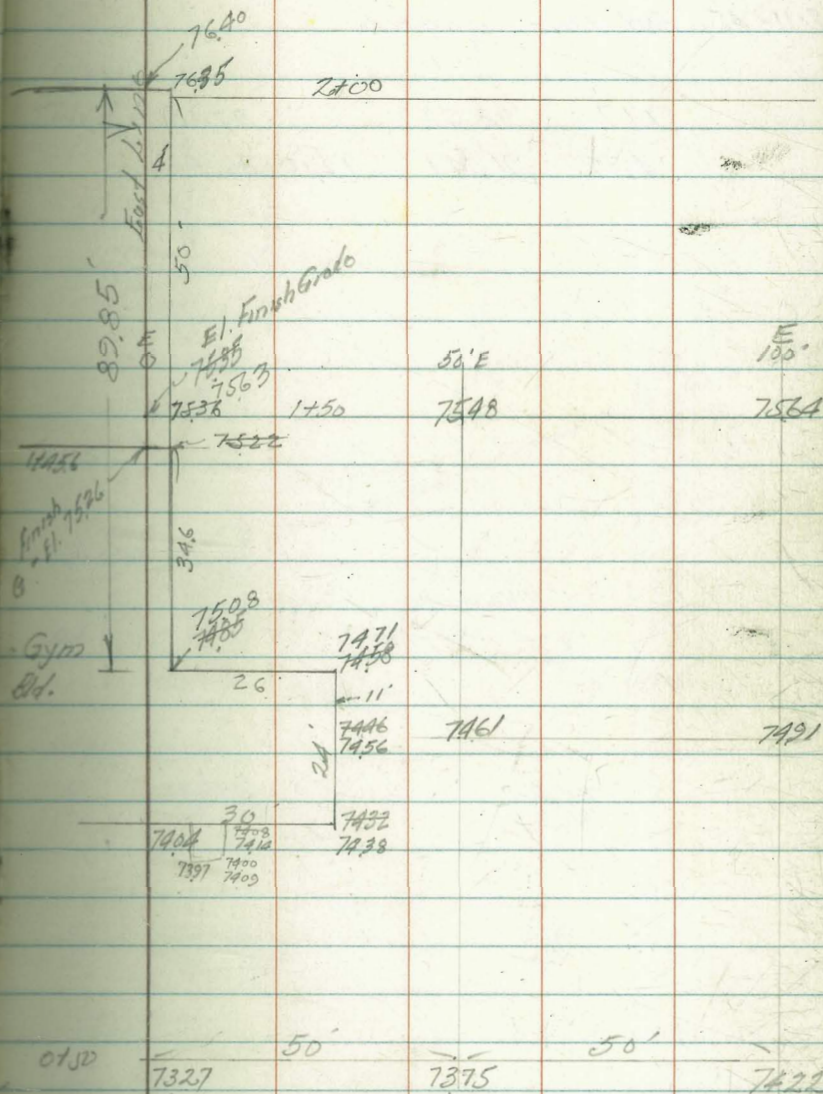 76.40
76.35
2+00
East Line
4
50'
89.85'
El. Finish Grade
0 E
7563
50'E
E
100'
75.36
1+50
75.48
75.64
75.22
1+45.6
Finish
El. 75.26
34.6
75.08
74.85
74.71
74.58
Gym
Bld.
26
11'
74.46
74.56
74.61
74.91
24'
30'
74.32
74.38
74.04
74.08
74.14
73.97
74.00
74.09
0+50
50'
50'
73.27
73.75
74.22